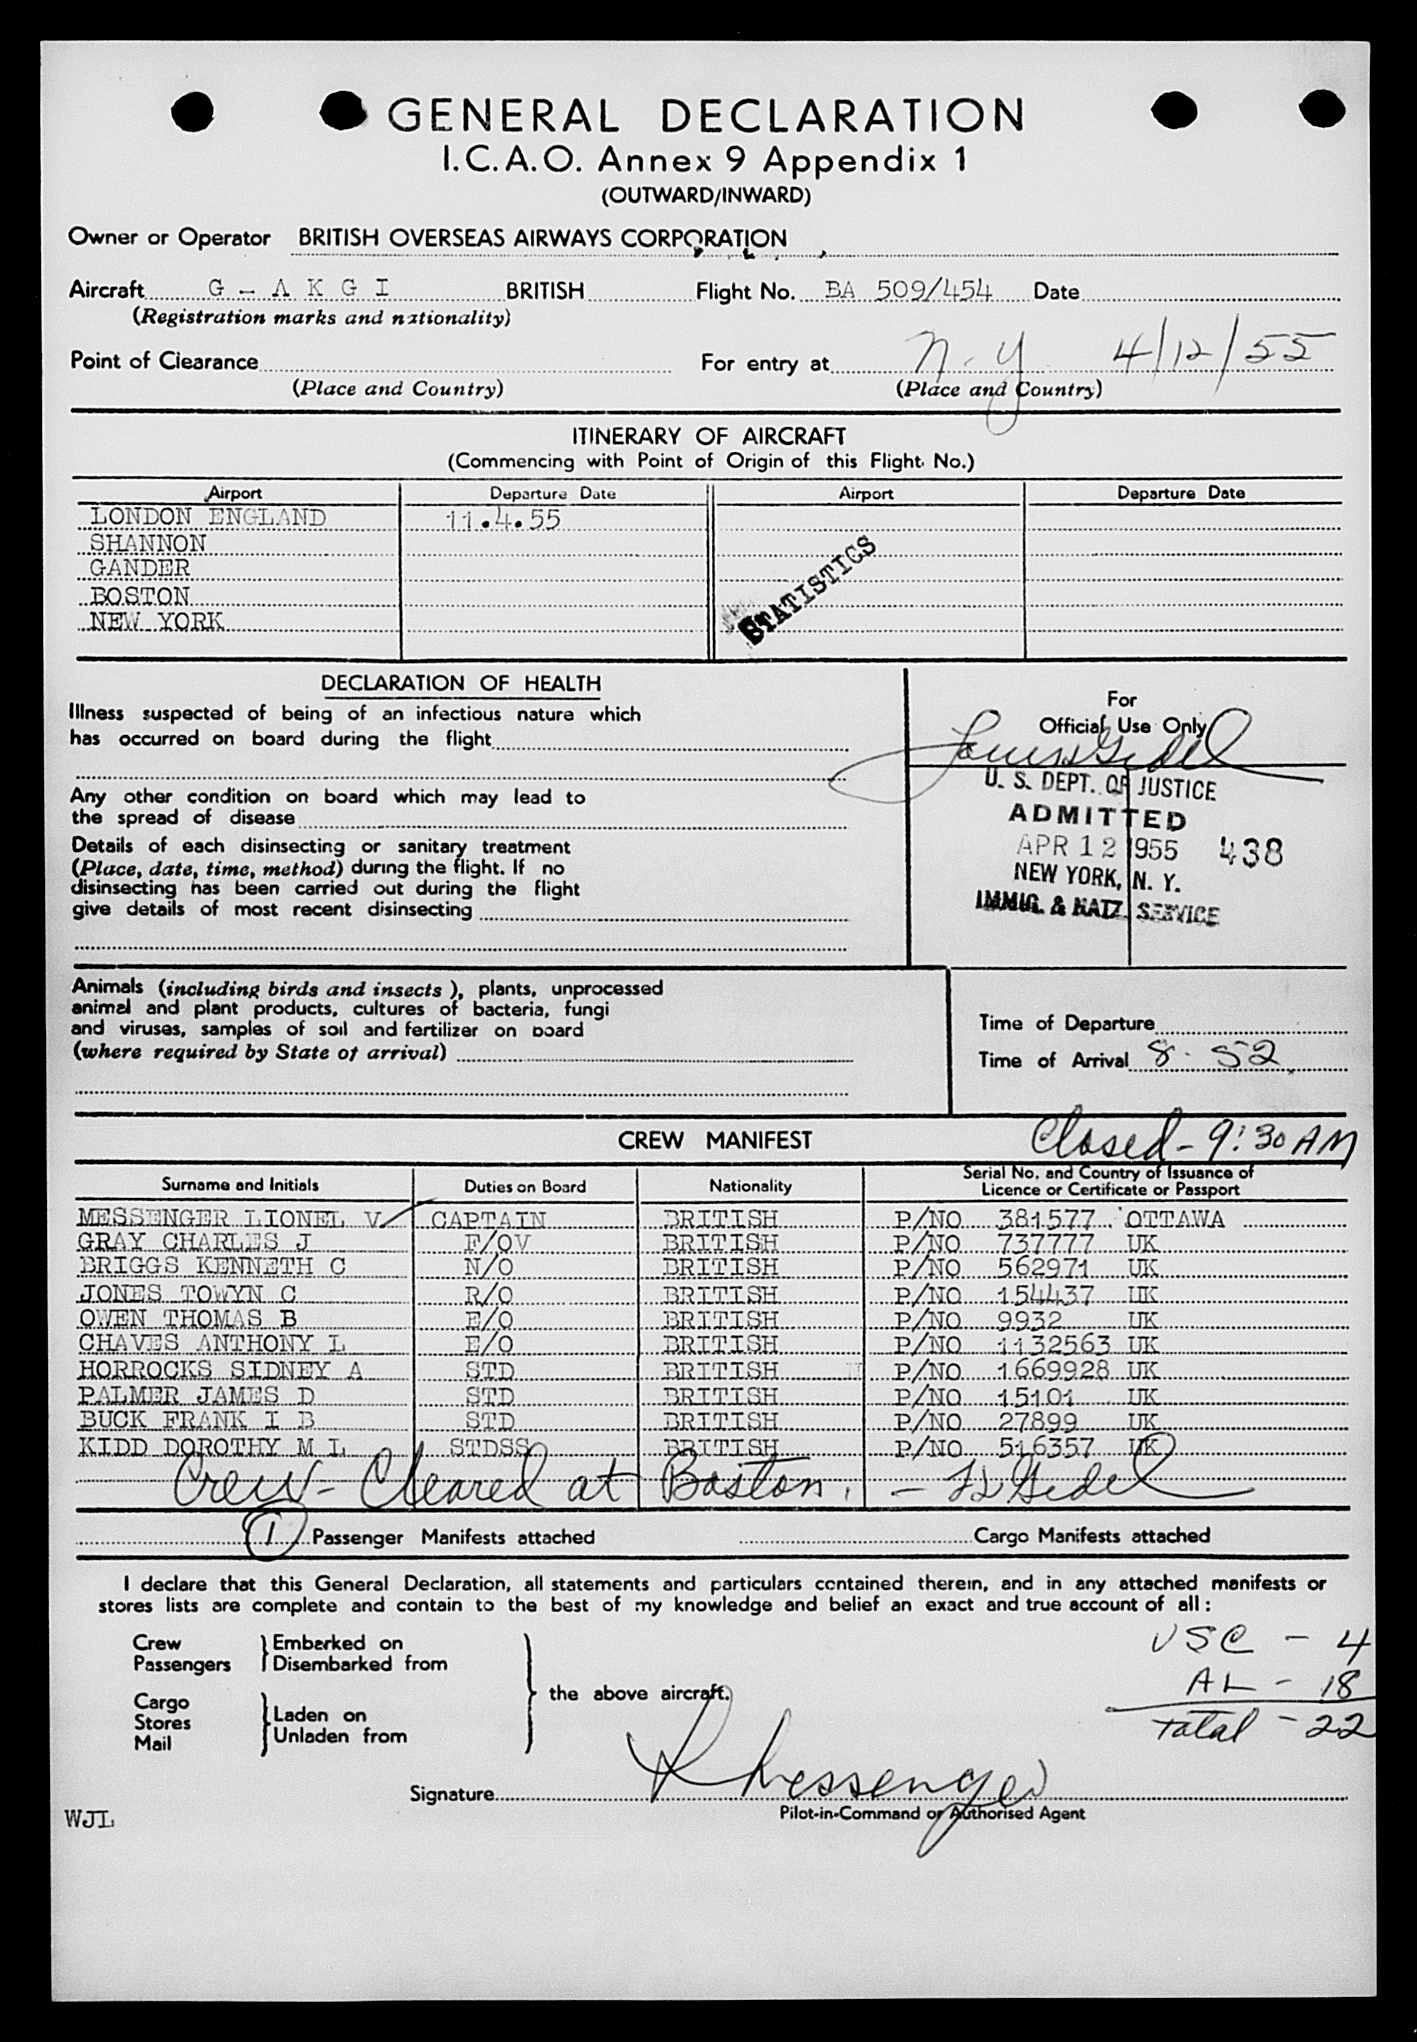 GENERAL DECLARATION
I.C.A.O. Annex 9 Appendix 1
(OUTWARD/INWARD)
Owner or Operator BRITISH OVERSEAS AIRWAYS CORPORATION
Aircraft G - A K G I BRITISH Flight No. BA 509/454 Date
(Registration marks and nationality)
Point of Clearance For entry at N. Y 4/12/55
(Place and Country) (Place and Country)
ITINERARY OF AIRCRAFT
(Commencing with Point of Origin of this Flight No.)
Airport Departure Date Airport Departure Date
LONDON ENGLAND 11.4.55
SHANNON
GANDER
BOSTON
NEW YORK
STATISTICS
DECLARATION OF HEALTH
Illness suspected of being of an infectious nature which
has occurred on board during the flight
Any other condition on board which may lead to
the spread of disease
Details of each disinsecting or sanitary treatment
(Place, date, time, method) during the flight. If no
disinsecting has been carried out during the flight
give details of most recent disinsecting
For
Official Use Only
U. S. DEPT. OF JUSTICE
ADMITTED
APR 12 1955 438
NEW YORK, N. Y.
IMMIG. & NATZ. SERVICE
Animals (including birds and insects), plants, unprocessed
animal and plant products, cultures of bacteria, fungi
and viruses, samples of soil and fertilizer on board
(where required by State of arrival)
Time of Departure
Time of Arrival 8. 52
Closed - 9:30 AM
CREW MANIFEST
Surname and Initials Duties on Board Nationality Serial No. and Country of Issuance of Licence or Certificate or Passport
MESSENGER LIONEL V CAPTAIN BRITISH P/NO 381577 OTTAWA
GRAY CHARLES J F/OV BRITISH P/NO 737777 UK
BRIGGS KENNETH C N/O BRITISH P/NO 562971 UK
JONES TOWYN C R/O BRITISH P/NO 154437 UK
OWEN THOMAS B E/O BRITISH P/NO 9932 UK
CHAVES ANTHONY L E/O BRITISH P/NO 1132563 UK
HORROCKS SIDNEY A STD BRITISH P/NO 1669928 UK
PALMER JAMES D STD BRITISH P/NO 15101 UK
BUCK FRANK I B STD BRITISH P/NO 27899 UK
KIDD DOROTHY M L STDSS BRITISH P/NO 516357 UK
Crew - Cleared at Boston. -
1 Passenger Manifests attached Cargo Manifests attached
I declare that this General Declaration, all statements and particulars contained therein, and in any attached manifests or
stores lists are complete and contain to the best of my knowledge and belief an exact and true account of all:
Crew Embarked on
Passengers Disembarked from
the above aircraft.
Cargo
Stores Laden on
Mail Unladen from
USC - 4
AL - 18
Total - 22
Signature Messenger
Pilot-in-Command or Authorised Agent
WJL